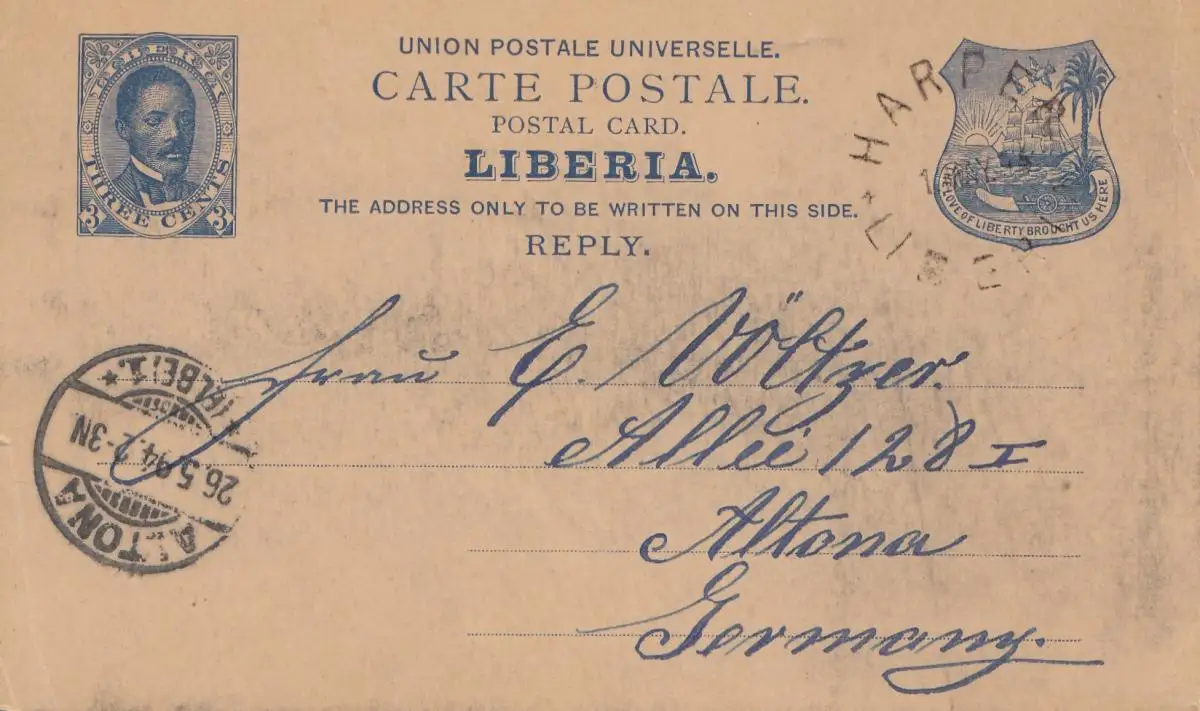 LIBERIA
THREE CENTS
3 3
UNION POSTALE UNIVERSELLE.
CARTE POSTALE.
POSTAL CARD.
LIBERIA.
THE ADDRESS ONLY TO BE WRITTEN ON THIS SIDE.
REPLY.
HARPER
THE LOVE OF LIBERTY BROUGHT US HERE
Frau E. Völtzer.
Allee 128 I
Altona
Germany.
ALTONA
26.5.94. 2-3N
(ELBE) 1.